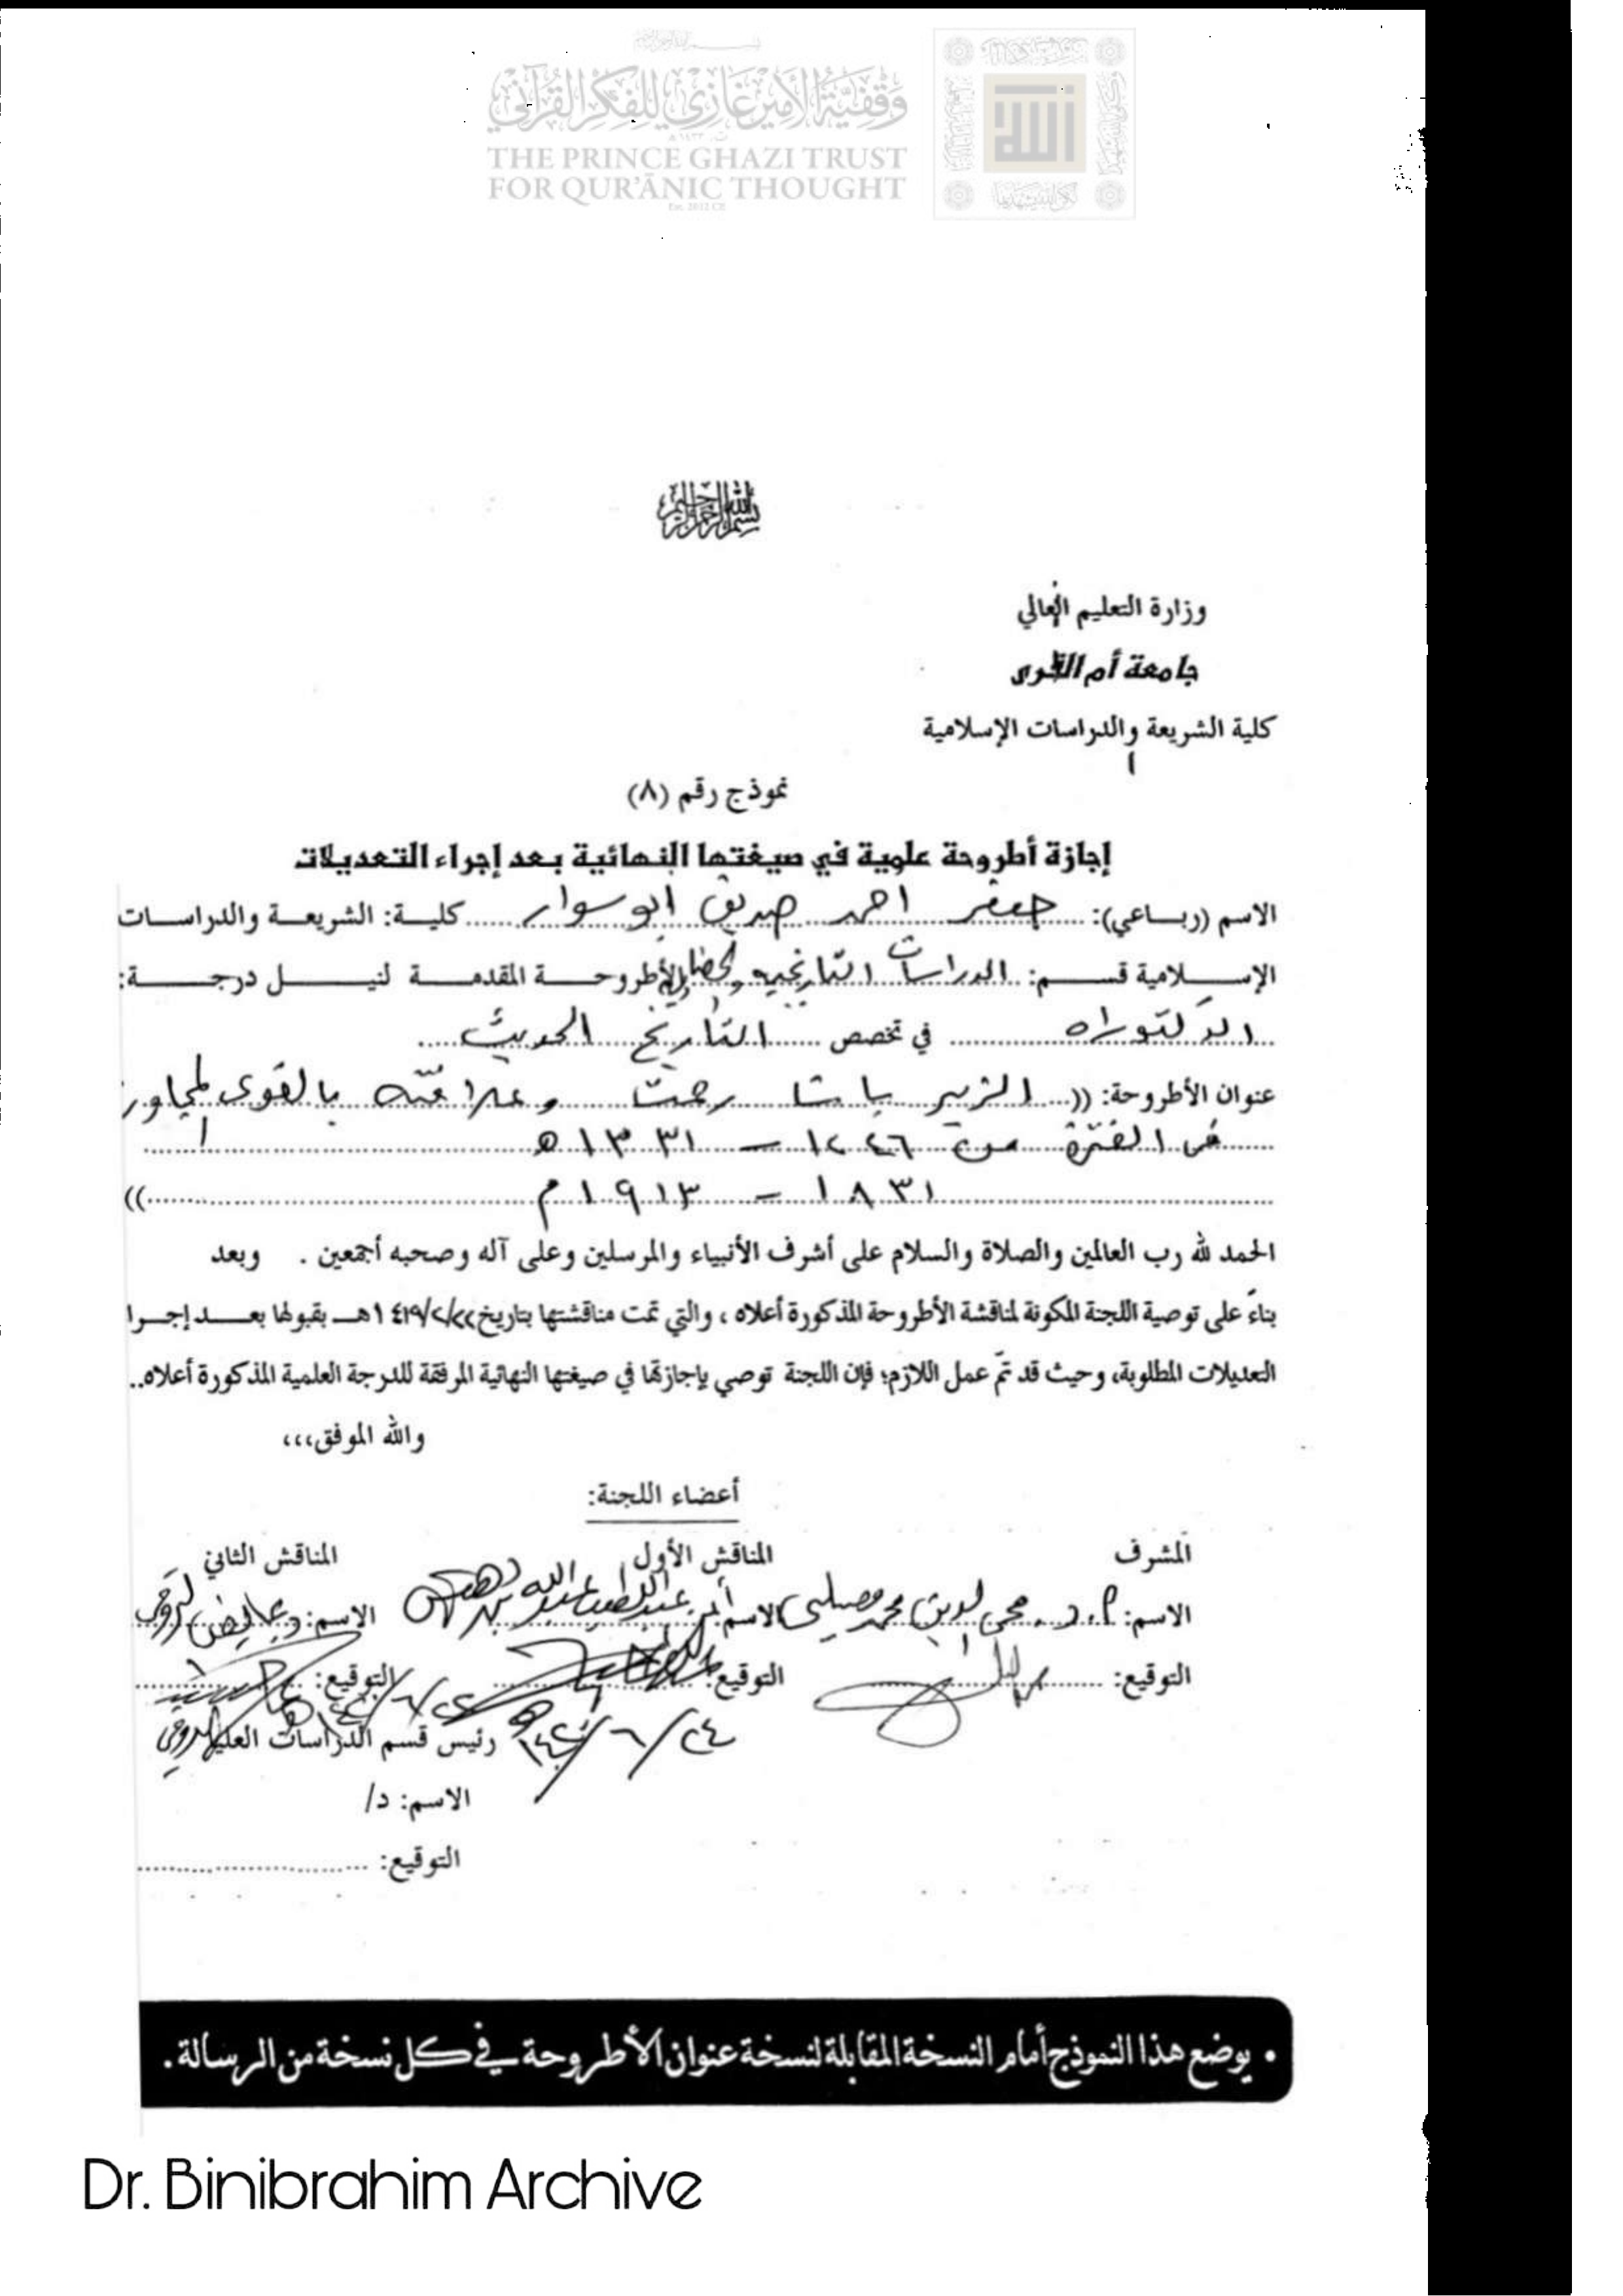 وقفية الأمير غازي للفكر القرآني
THE PRINCE GHAZI TRUST
FOR QUR'ĀNIC THOUGHT
Est. 2012 CE
بسم الله الرحمن الرحيم
وزارة التعليم العالي
جامعة أم القرى
كلية الشريعة والدراسات الإسلامية
نموذج رقم (٨)
إجازة أطروحة علمية في صيغتها النهائية بعد إجراء التعديلات
الاسم (رباعي): جعفر احمد صديق ابو سوار كلية: الشريعة والدراسات
الإسلامية قسم: الدراسات التاريخيه والأطروحة المقدمة لنيل درجة:
الدكتوراه في تخصص التاريخ الحديث
عنوان الأطروحة: ((الزبير باشا رحمت وعلاقته بالقوى المجاورة
في الفترة من ١٢٤٦ – ١٣٣١ ه
١٨٣١ – ١٩١٣ م ))
الحمد لله رب العالمين والصلاة والسلام على أشرف الأنبياء والمرسلين وعلى آله وصحبه أجمعين . وبعد
بناءً على توصية اللجنة المكونة لمناقشة الأطروحة المذكورة أعلاه ، والتي تمت مناقشتها بتاريخ ٢٢/٢/١٤١٩هـ بقبولها بعد إجرا
التعديلات المطلوبة، وحيث قد تمّ عمل اللازم؛ فإن اللجنة توصي بإجازتها في صيغتها النهائية المرفقة للدرجة العلمية المذكورة أعلاه..
والله الموفق،،،
أعضاء اللجنة:
المشرف المناقش الأول المناقش الثاني
الاسم: أ.د. محي الدين محمد مصيلحي الاسم: أ.د. عبداللطيف عبدالله بن دهيش الاسم: د. عايض الروقي
التوقيع: التوقيع: التوقيع:
٢٤/٦/١٤٢٠هـ رئيس قسم الدراسات العليا
الاسم: د/
التوقيع:
• يوضع هذا النموذج أمام النسخة المقابلة لنسخة عنوان الأطروحة في كل نسخة من الرسالة .
Dr. Binibrahim Archive